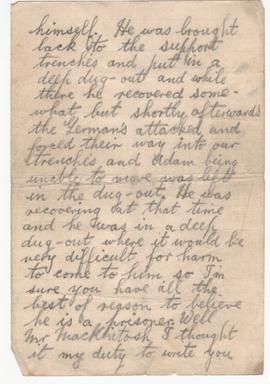 himself. He was brought
back to the support
trenches and put in a
deep dug-out and while
there he recovered some-
what but shortly afterwards
the German's attacked and
forced their way into our
trenches and Adam being
unable to move was left
in the dug-out. He was
recovering at that time
and he was in a deep
dug-out where it would be
very difficult for harm
to come to him so I'm
sure you have all the
best of reason to believe
he is a prisoner. Well
Mr Mackintosh I thought
it my duty to write you